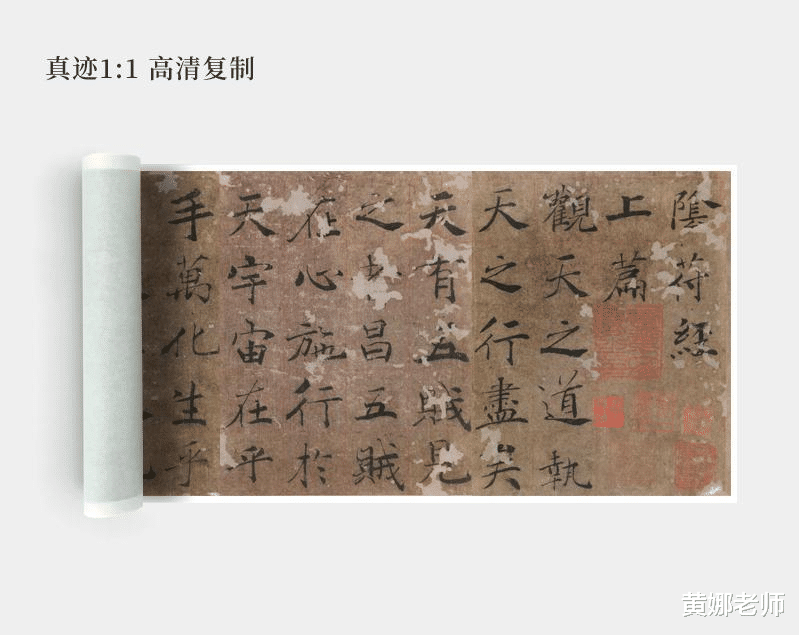 真迹1:1 高清复制
陰符經
上篇
觀天之道執
天之行盡矣
天有五賊見
之昌五賊
在心施行於
天宇宙在乎
手萬化生乎
黄娜老师